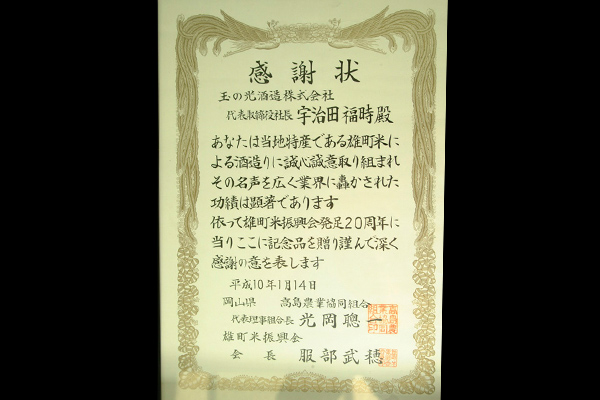 感謝状
玉の光酒造株式会社
代表取締役社長 宇治田福時殿
あなたは当地特産である雄町米に
よる酒造りに誠心誠意取り組まれ
その名声を広く業界に轟かされた
功績は顕著であります
依って雄町米振興会発足20周年に
当りここに記念品を贈り謹んで深く
感謝の意を表します
平成10年1月14日
岡山県 高島農業協同組合
代表理事組合長 光岡聰一
雄町米振興会
会長 服部武穂